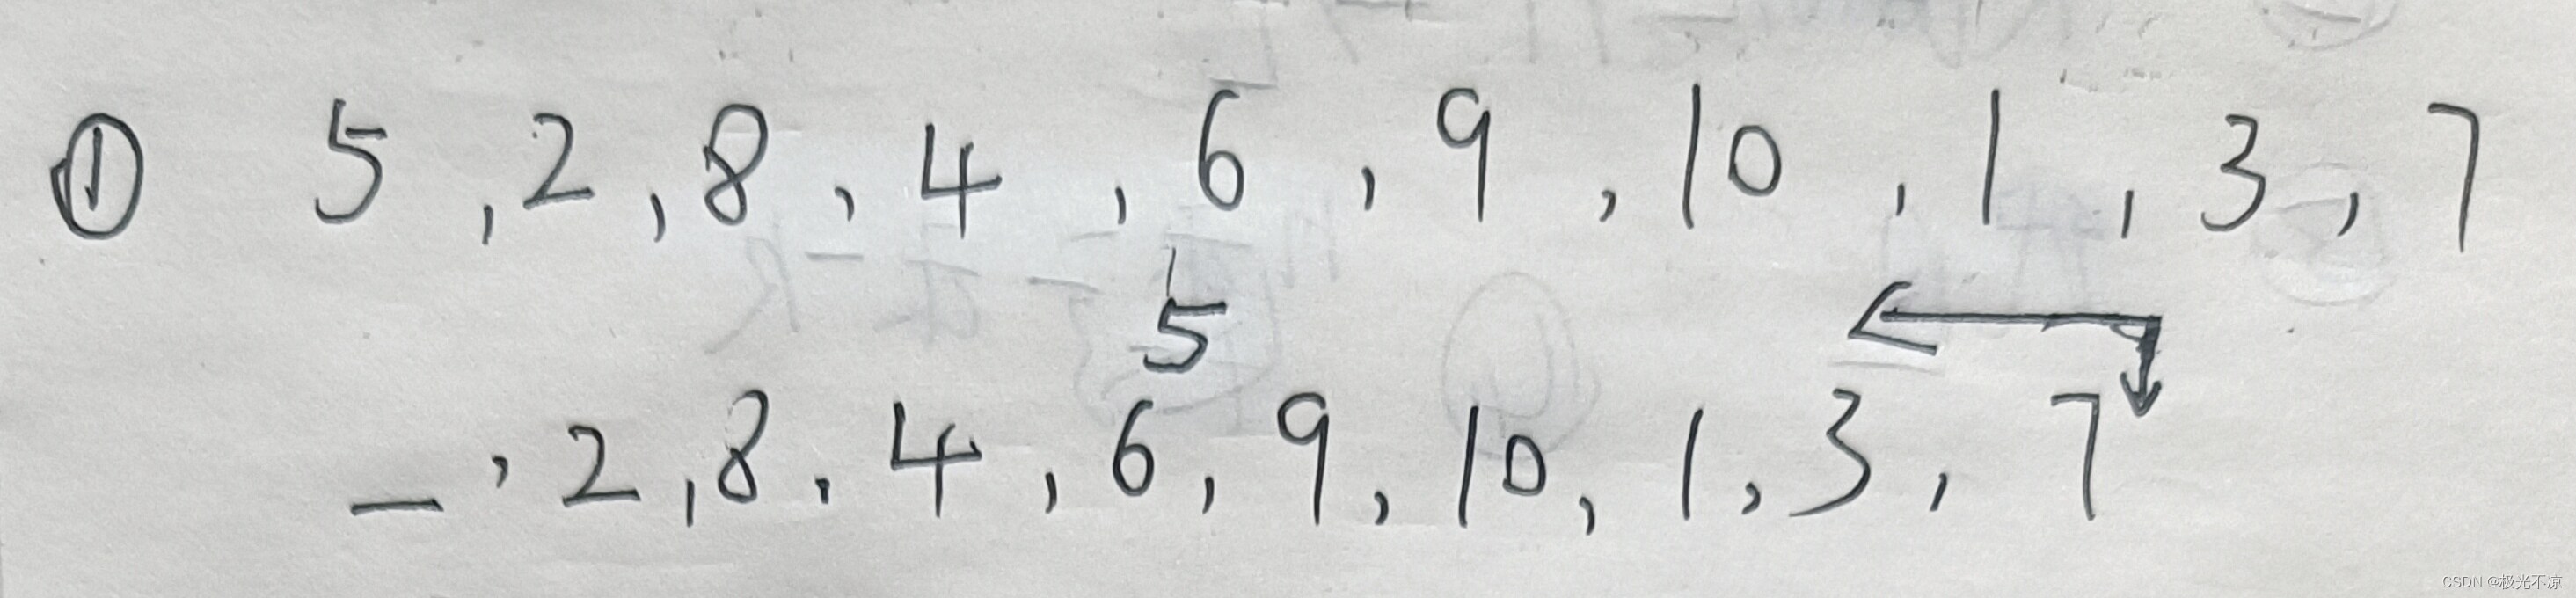 ① 5,2,8,4,6,9,10,1,3,7
5
_,2,8,4,6,9,10,1,3,7
CSDN @极光不凉